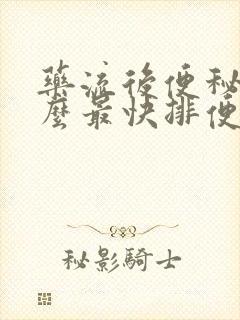 藥流後便秘
麼最快排便
秘影騎士